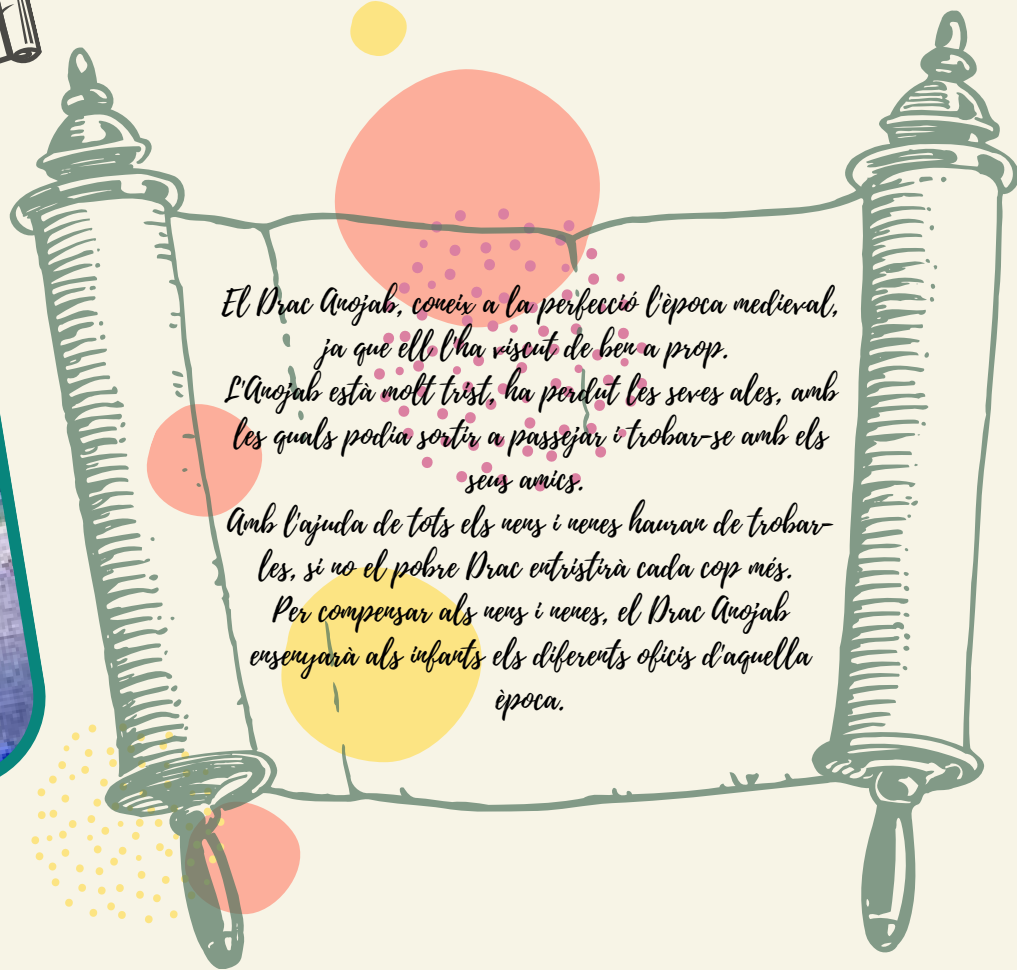 El Drac Anojab, coneix a la perfecció l'època medieval,
ja que ell l'ha viscut de ben a prop.
L'Anojab està molt trist, ha perdut les seves ales, amb
les quals podia sortir a passejar i trobar-se amb els
seus amics.
Amb l'ajuda de tots els nens i nenes hauran de trobar-
les, si no el pobre Drac entristirà cada cop més.
Per compensar als nens i nenes, el Drac Anojab
ensenyarà als infants els diferents oficis d'aquella
època.